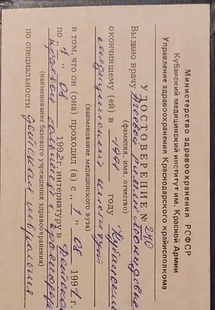 Министерство здравоохранения РСФСР
Кубанский медицинский институт им. Красной Армии
Управление здравоохранения Краснодарского крайисполкома
УДОСТОВЕРЕНИЕ № 240
Выдано врачу
(фамилия, имя, отчество)
окончившему (ей) в 1991 году Кубанский
медицинский институт
(наименование медицинского вуза)
в том, что он (она) проходил (а) с „1“ 08 1991 г.
по „1“ 08 1992 г. интернатуру в
(наименование базового учреждения здравоохранения)
по специальности детская хирургия